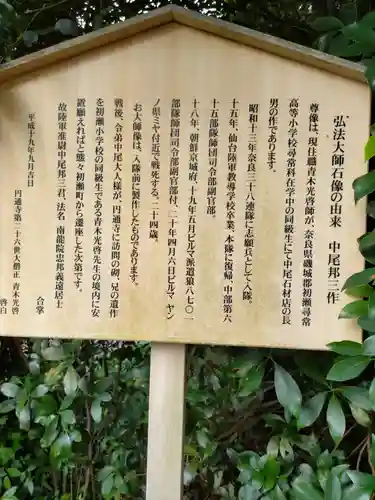 弘法大師石像の由来　中尾邦三作
尊像は、現住職青木光啓師が、奈良県磯城郡初瀬尋常
高等小学校尋常科在学中の同級生にて中尾石材店の長
男の作であります。
昭和十三年奈良三十八連隊に志願兵として入隊。
十五年、仙台陸軍教導学校卒業、本隊に復帰、中部第六
十五部隊師団司令部副官部。
十八年、朝鮮京城府、十九年五月ビルマ派遣狼八七〇一
部隊師団司令部副官部付、二十年四月六日ビルマ　ヤン
ノ県ミヤ付近で戦死する。二十四歳。
お大師像は、入隊前に製作したものであります。
戦後、令弟中尾大人様が、円通寺に訪問の砌、兄の遺作
を初瀬小学校の同級生である青木光啓先生の境内に安
置願えればと態々初瀬町から遷座した次第です。
故陸軍准尉中尾邦三君、法名　南龍院忠邦義遠居士
合掌
平成十九年九月吉日
円通寺第二十六世大僧正　青木光啓
啓白